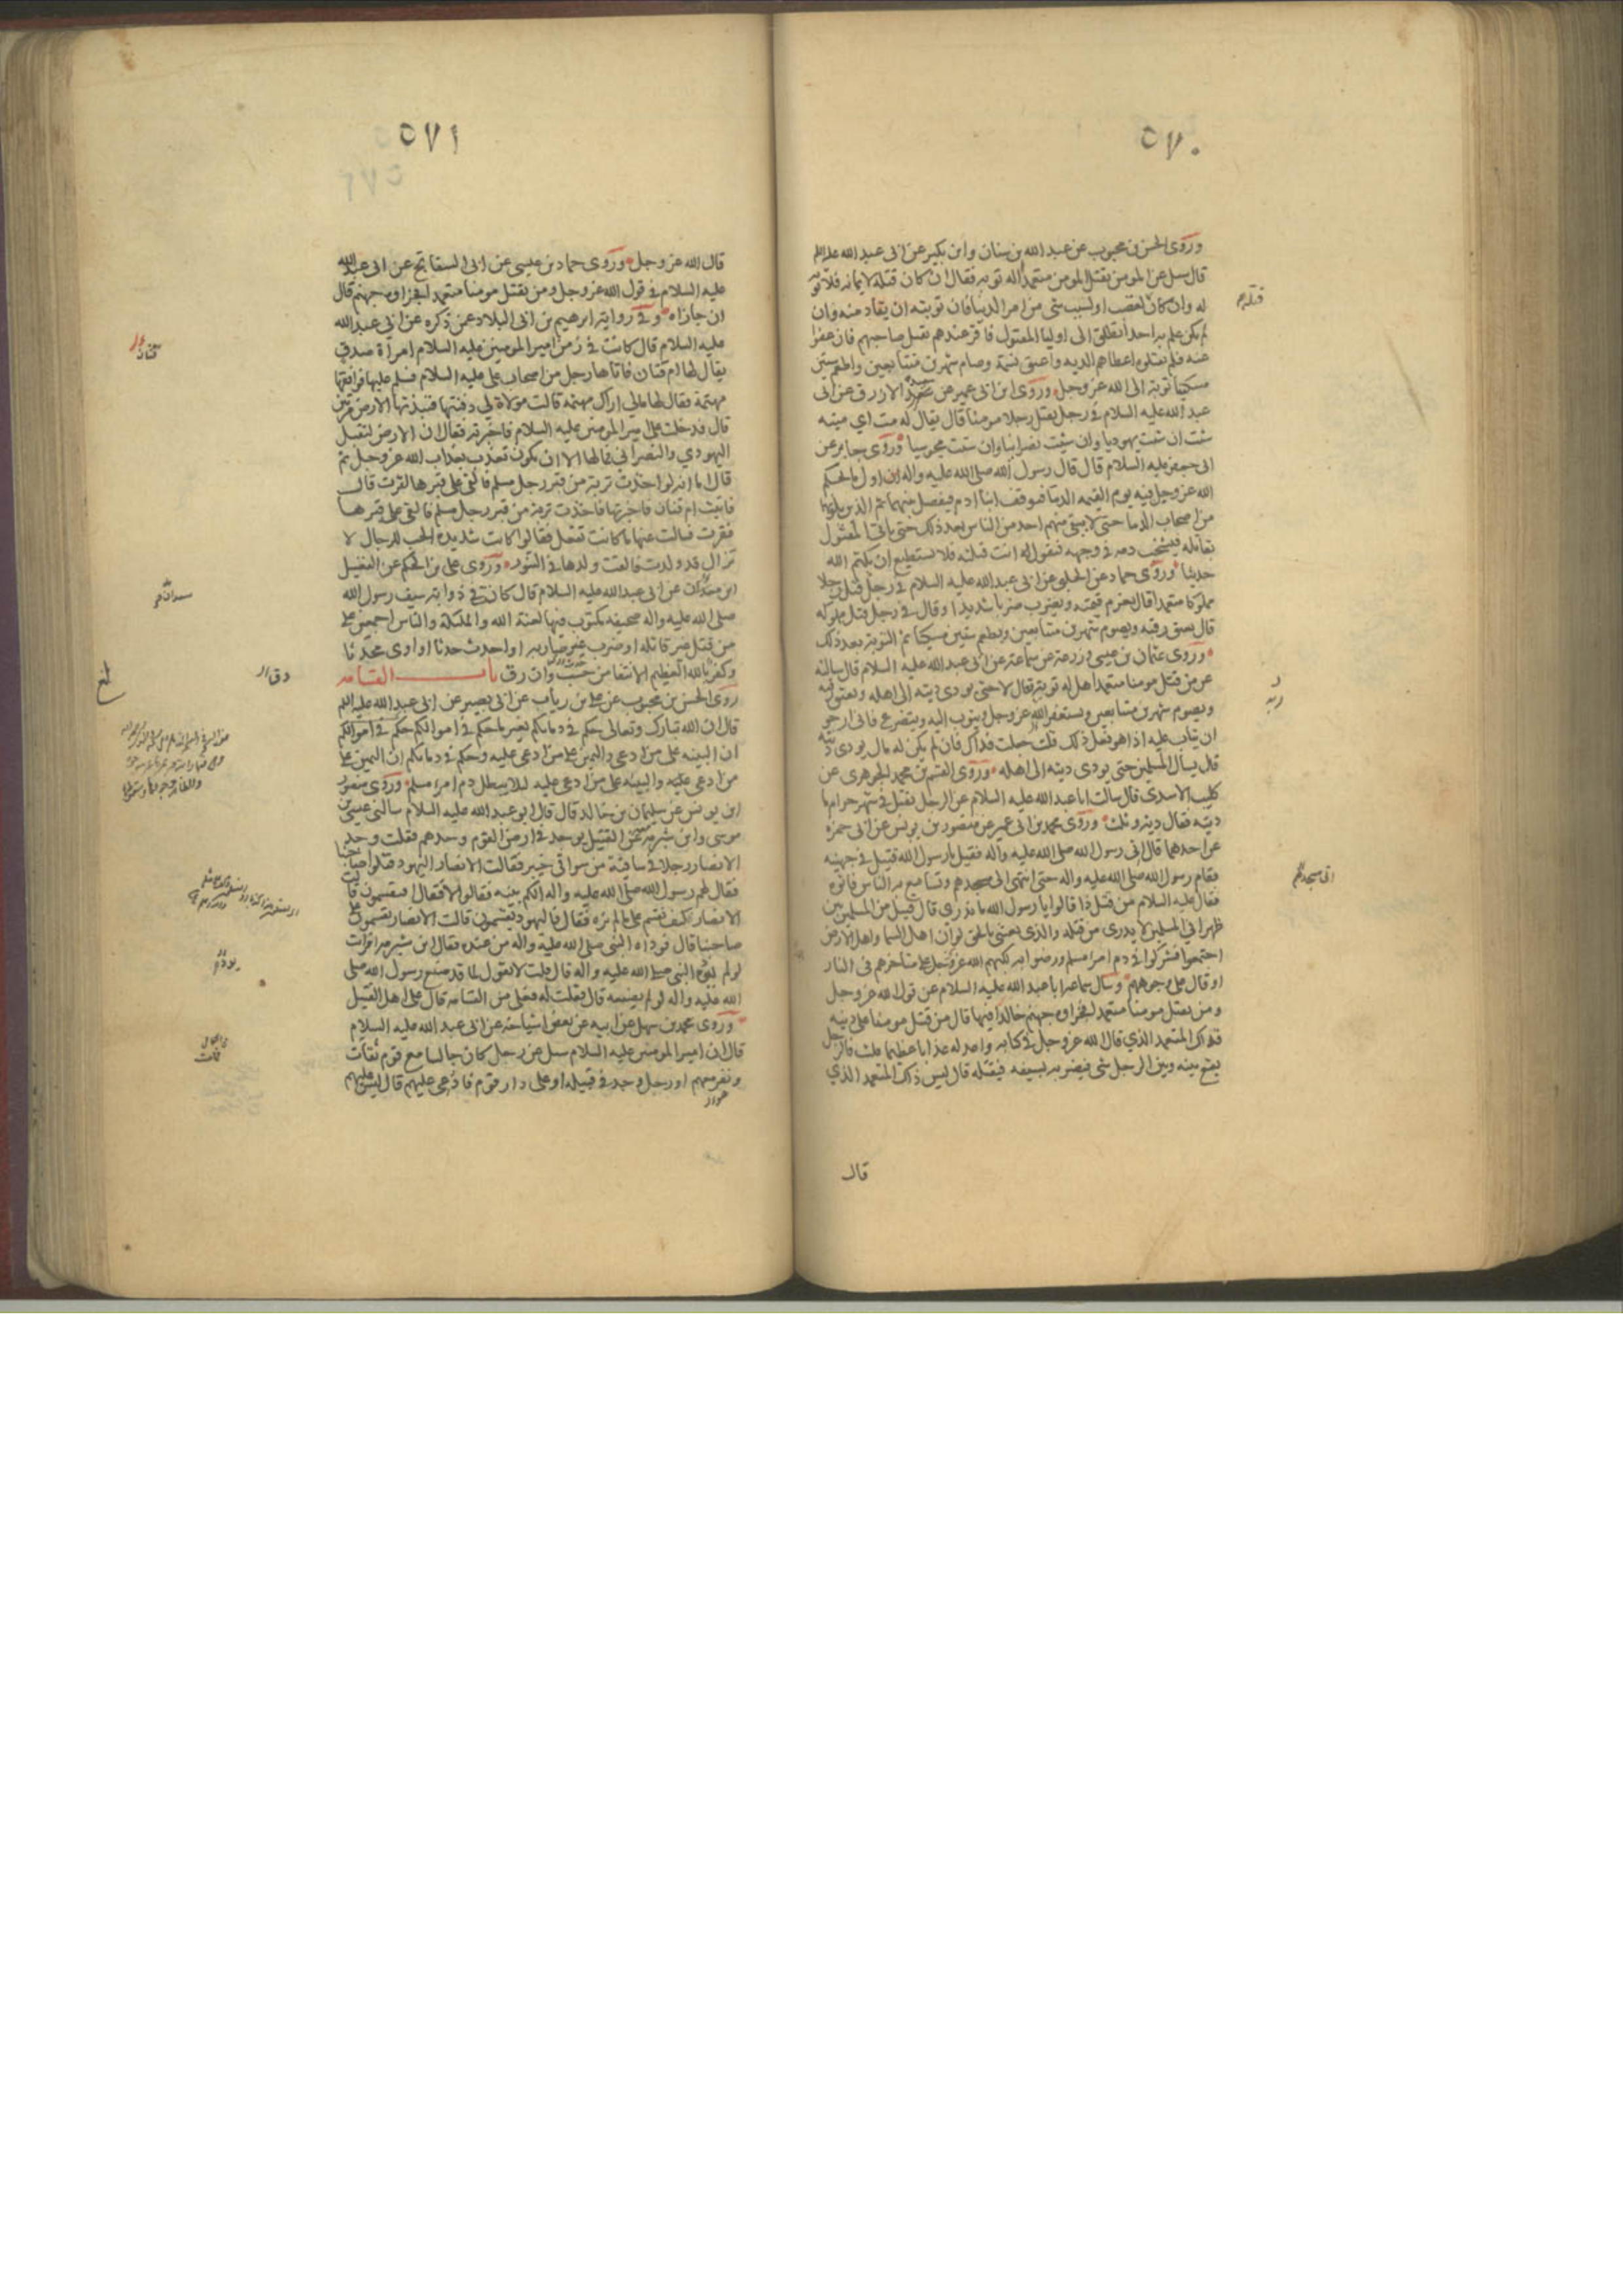 ٥٧٠
وروى الحسن بن محبوب عن عبد الله بن سنان وابن بكير عن ابى عبد الله عليه السلم
قال سئل عن المومن يقتل المومن متعمدا له توبه فقال ان كان قتله لايمانه فلا توبه
له وان كان لغضب او لسبب شى من امر الدنيا فان توبته ان يقاد منه وان
لم يكن علم به احد انطلق الى اوليا المقتول فاقر عندهم بقتل صاحبهم فان عفوا
عنه فلم يقتلوه اعطاهم الديه واعتق نسمة وصام شهرين متتابعين واطعم ستين
مسكينا توبة الى الله عز وجل وروى ابن ابى عمير عن الازرق عن ابى
عبد الله عليه السلام فى رجل يقتل رجلا مومنا قال يقال له مت اى ميته
شئت ان شئت يهوديا وان شئت نصرانيا وان شئت مجوسيا وروى جابر عن
ابى جعفر عليه السلام قال قال رسول الله صلى الله عليه واله ان اول ما يحكم
الله عز وجل فيه يوم القيمه الدما فيوقف ابنا ادم فيفصل بينهما ثم الذين يلونهما
من اصحاب الدما حتى لا يبقى منهم احد من الناس بعد ذلك حتى ياتى المقتول
بقاتله فيشخب دمه فى وجهه فيقول له انت قتلته فلا يستطيع ان يكتم الله
حديثا وروى حماد عن الحلبى عن ابى عبد الله عليه السلام فى رجل قتل رجلا
مملوكا متعمدا قال يغرم قيمته ويضرب ضربا شديدا وقال فى رجل قتل مملوكه
قال يعتق رقبه ويصوم شهرين متتابعين ويطعم ستين مسكينا ثم التوبة بعد ذلك
وروى عثمان بن عيسى وزرعه عن سماعة عن ابى عبد الله عليه السلام قال سالته
عن من قتل مومنا متعمدا هل له توبة قال لا حتى يودى ديته الى اهله ويعتق رقبه
ويصوم شهرين متتابعين ويستغفر الله عز وجل ويتوب اليه ويتضرع فانى ارجو
ان يتاب عليه اذا هو فعل ذلك قلت جعلت فداك فان لم يكن له مال يودى ديته
قال يسال المسلمين حتى يودى ديته الى اهله وروى القسم بن محمد الجوهرى عن
كليب الاسدى قال سالت ابا عبد الله عليه السلام عن الرجل يقتل فى شهر حرام ما
ديته فقال دية وثلث وروى محمد بن ابى عمير عن منصور بن يونس عن ابى حمزه
عن احدهما قال اتى رسول الله صلى الله عليه واله فقيل يا رسول الله قتيل فى جهينه
فقام رسول الله صلى الله عليه واله حتى انتهى الى مسجدهم وتسامع به الناس فاتوه
فقال عليه السلام من قتل ذا قالوا يا رسول الله ما ندرى قال قتيل من المسلمين بين
ظهرانى المسلمين لا يدرى من قتله والذى بعثنى بالحق لو ان اهل السما واهل الارض
اجتمعوا فشركوا فى دم امرء مسلم ورضوا به لكبهم الله عز وجل على مناخرهم فى النار
او قال على وجوههم وسال سماعه ابا عبد الله عليه السلام عن قول الله عز وجل
ومن يقتل مومنا متعمدا فجزاوه جهنم خالدا فيها قال من قتل مومنا على دينه
فذاك المتعمد الذي قال الله عز وجل فى كتابه واعد له عذابا عظيما قلت فالرجل
يقع بينه وبين الرجل شى فيضربه بسيفه فيقتله قال ليس ذاك المتعمد الذي
قال
٥٧١
قال الله عز وجل وروى حماد بن عيسى عن ابى السفاتج عن ابى عبد الله
عليه السلام فى قول الله عز وجل ومن يقتل مومنا متعمدا فجزاوه جهنم قال
ان جازاه وفى رواية ابرهيم بن ابى البلاد عمن ذكره عن ابى عبد الله
عليه السلام قال كانت فى زمن امير المومنين عليه السلام امراة صدق
يقال لها ام قنان فاتاها رجل من اصحاب على عليه السلام فسلم عليها فوافقها
مهتمة فقال لها مالى اراك مهتمه قالت مولاة لى دفنتها فنبذتها الارض مرتين
قال فدخلت على امير المومنين عليه السلام فاخبرته فقال ان الارض لتقبل
اليهودي والنصرانى فمالها الا ان يكون تعذب بعذاب الله عز وجل ثم
قال اما انه لو اخذت تربة من قبر رجل مسلم فالقى على قبرها لقرت قال
فاتيت ام قنان فاخبرتها فاخذت تربة من قبر رجل مسلم فالقى على قبرها
فقرت فسالت عنها ما كانت تفعل فقالوا كانت شديدة الحب للرجال لا
تزال قد ولدت فالقت ولدها فى التنور وروى على بن الحكم عن الفضيل
ابن سعدان عن ابى عبد الله عليه السلام قال كانت فى ذوابة سيف رسول الله
صلى الله عليه واله صحيفه مكتوب فيها لعنة الله والملئكة والناس اجمعين على
من قتل غير قاتله او ضرب غير ضاربه او احدث حدثا او اوى محدثا
وكفر بالله العظيم الانتفا من حسب وان دق باب القسامه
روى الحسن بن محبوب عن على بن رياب عن ابى بصير عن ابى عبد الله عليه السلم
قال ان الله تبارك وتعالى حكم فى دمائكم بغير ما حكم فى اموالكم حكم فى اموالكم
ان البينه على من ادعى واليمين على من ادعى عليه وحكم فى دمائكم ان اليمين على
من ادعى عليه والبينه على من ادعى عليه لئلا يبطل دم امرء مسلم وروى منصور
ابن يونس عن سليمان بن خالد قال قال ابو عبد الله عليه السلام سالنى عيسى بن
موسى وابن شبرمه عن القتيل يوجد فى ارض القوم وحدهم فقلت وجد
الانصار رجلا فى ساقية من سواقى خيبر فقالت الانصار اليهود قتلوا صاحبنا
فقال لهم رسول الله صلى الله عليه واله الكم بينه فقالوا لا فقال افتقسمون قالت
الانصار كيف نقسم على ما لم نره فقال فاليهود يقسمون قالت الانصار يقسمون على
صاحبنا قال فوداه النبى صلى الله عليه واله من عنده فقال ابن شبرمه افرايت
لو لم يوده النبى صلى الله عليه واله قال قلت لا نقول لما قد صنع رسول الله صلى
الله عليه واله لو لم يصنعه قال فقلت له فعلى من القسامه قال على اهل القتيل
وروى محمد بن سهل عن ابيه عن بعض اشياخه عن ابى عبد الله عليه السلام
قال ان امير المومنين عليه السلام سئل عن رجل كان جالسا مع قوم ثقات
ونفر معهم او رجل وجد فى قبيله او على دار قوم فادعى عليهم قال ليس عليهم